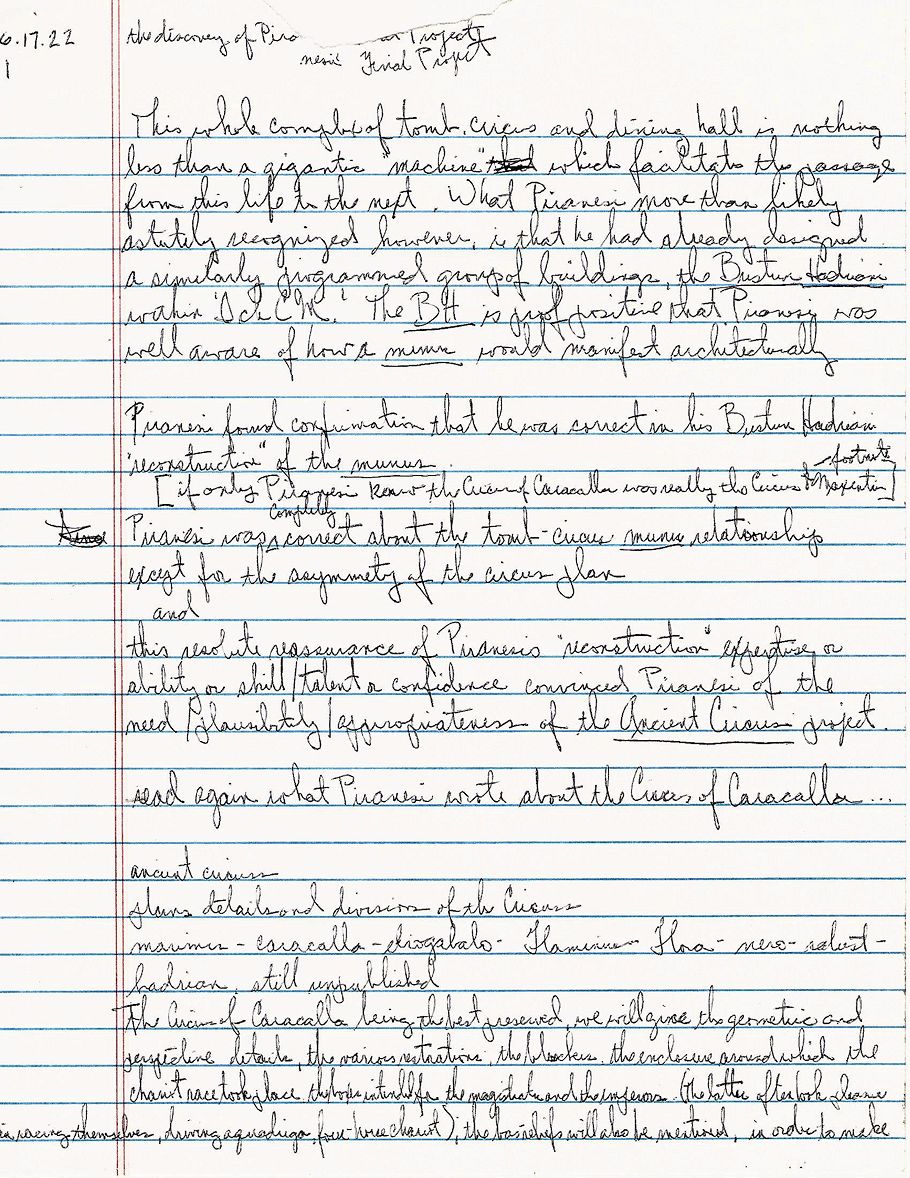 6.17.22
1
the discovery of Pira
Project
nesi's Final Project
This whole complex of tomb, circus and dining hall is nothing
less than a gigantic "machine" which facilitates the passage
from this life to the next. What Piranesi more than likely
astutely recognized however, is that he had already designed
a similarly programmed group of buildings, the Bustum Hadriani
within 'Ich CM.' The BH is proof positive that Piranesi was
well aware of how a munus would manifest architecturally
Piranesi found confirmation that he was correct in his Bustum Hadriani
"reconstruction" of the munus.
footnote
[if only Piranesi knew the Circus of Caracalla was really the Circus of Maxentius]
completely
Piranesi was correct about the tomb-circus munus relationship
except for the asymmetry of the circus plan
and
this resolute reassurance of Piranesi's "reconstruction" expertise or
ability or skill/talent or confidence convinced Piranesi of the
need/plausibility/appropriateness of the Ancient Circus project.
read again what Piranesi wrote about the Circus of Caracalla...
ancient circuses
plans details and divisions of the Circuses
maximus - caracalla - eliogabalo - Flaminius - Flora - nero - salust -
hadrian, still unpublished
The Circus of Caracalla being the best preserved, we will give the geometric and
perspective details, the various restorations, the bleachers, the enclosure around which the
chariot race took place, the boxes intended for the magistrates and the emperors. (The latter often took pleasure
in racing themselves, driving a quadriga, four-horse chariot), the bas reliefs will also be mentioned, in order to make